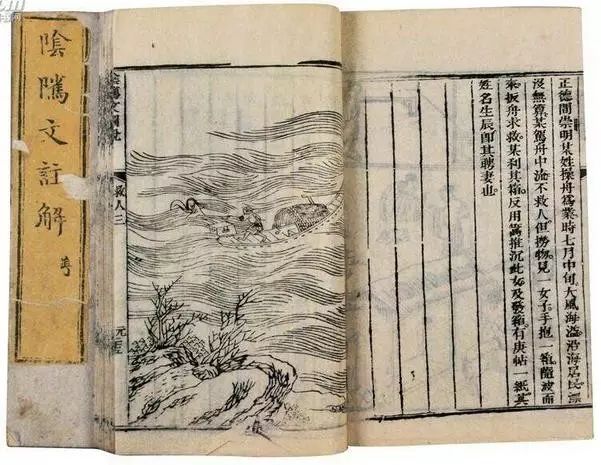 正德間崇明某姓操舟爲業時七月中旬大風海溢沿海居民漂
沒無算某駕舟中流不救人但撈物見一女子手抱一箱隨波而
來扳舟求救某利其箱反用篙推沉此女及發箱有庚帖一紙其
姓名生辰卽其聘妻也
陰隲文圖註
救人三
陰隲文註解